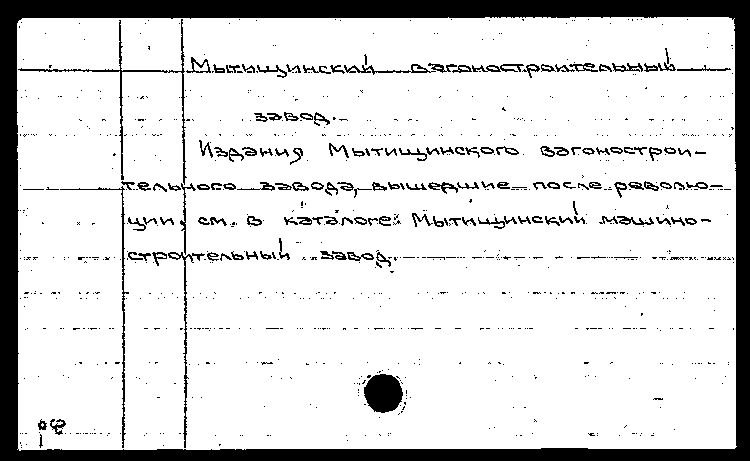 Мытищинский вагоностроительный
завод.
Издания Мытищинского вагонострои-
тельного завода, вышедшие после револю-
ции, см. в каталоге: Мытищинский машино-
строительный завод.